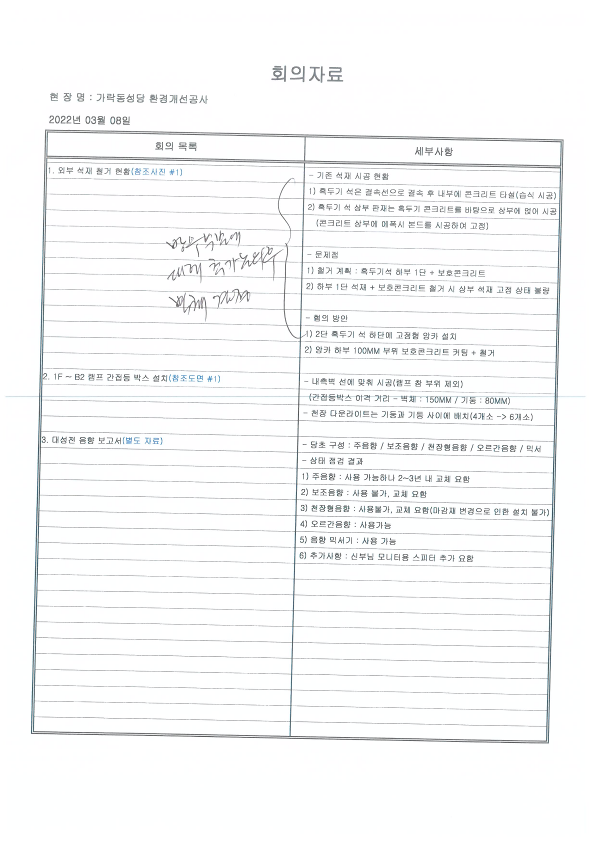 회의자료
현 장 명 : 가락동성당 환경개선공사
2022년 03월 08일
회의 목록
세부사항
1. 외부 석재 철거 현황(참조사진 #1)
- 기존 석재 시공 현황
1) 혹두기 석은 결속선으로 결속 후 내부에 콘크리트 타설(습식 시공)
2) 혹두기 석 상부 판재는 혹두기 콘크리트를 바탕으로 상부에 얹어 시공
(콘크리트 상부에 에폭시 본드를 시공하여 고정)
- 문제점
1) 철거 계획 : 혹두기석 하부 1단 + 보호콘크리트
2) 하부 1단 석재 + 보호콘크리트 철거 시 상부 석재 고정 상태 불량
- 협의 방안
1) 2단 혹두기 석 하단에 고정형 앙카 설치
2) 앙카 하부 100MM 부위 보호콘크리트 커팅 + 철거
2. 1F ~ B2 램프 간접등 박스 설치(참조도면 #1)
- 내측벽 선에 맞춰 시공(램프 참 부위 제외)
(간접등박스 이격 거리 - 벽체 : 150MM / 기둥 : 80MM)
- 천장 다운라이트는 기둥과 기둥 사이에 배치(4개소 -> 6개소)
3. 대성전 음향 보고서(별도 자료)
- 당초 구성 : 주음향 / 보조음향 / 천장형음향 / 오르간음향 / 믹서
- 상태 점검 결과
1) 주음향 : 사용 가능하나 2~3년 내 교체 요함
2) 보조음향 : 사용 불가, 교체 요함
3) 천장형음향 : 사용불가, 교체 요함(마감재 변경으로 인한 설치 불가)
4) 오르간음향 : 사용가능
5) 음향 믹서기 : 사용 가능
6) 추가사항 : 신부님 모니터용 스피터 추가 요함